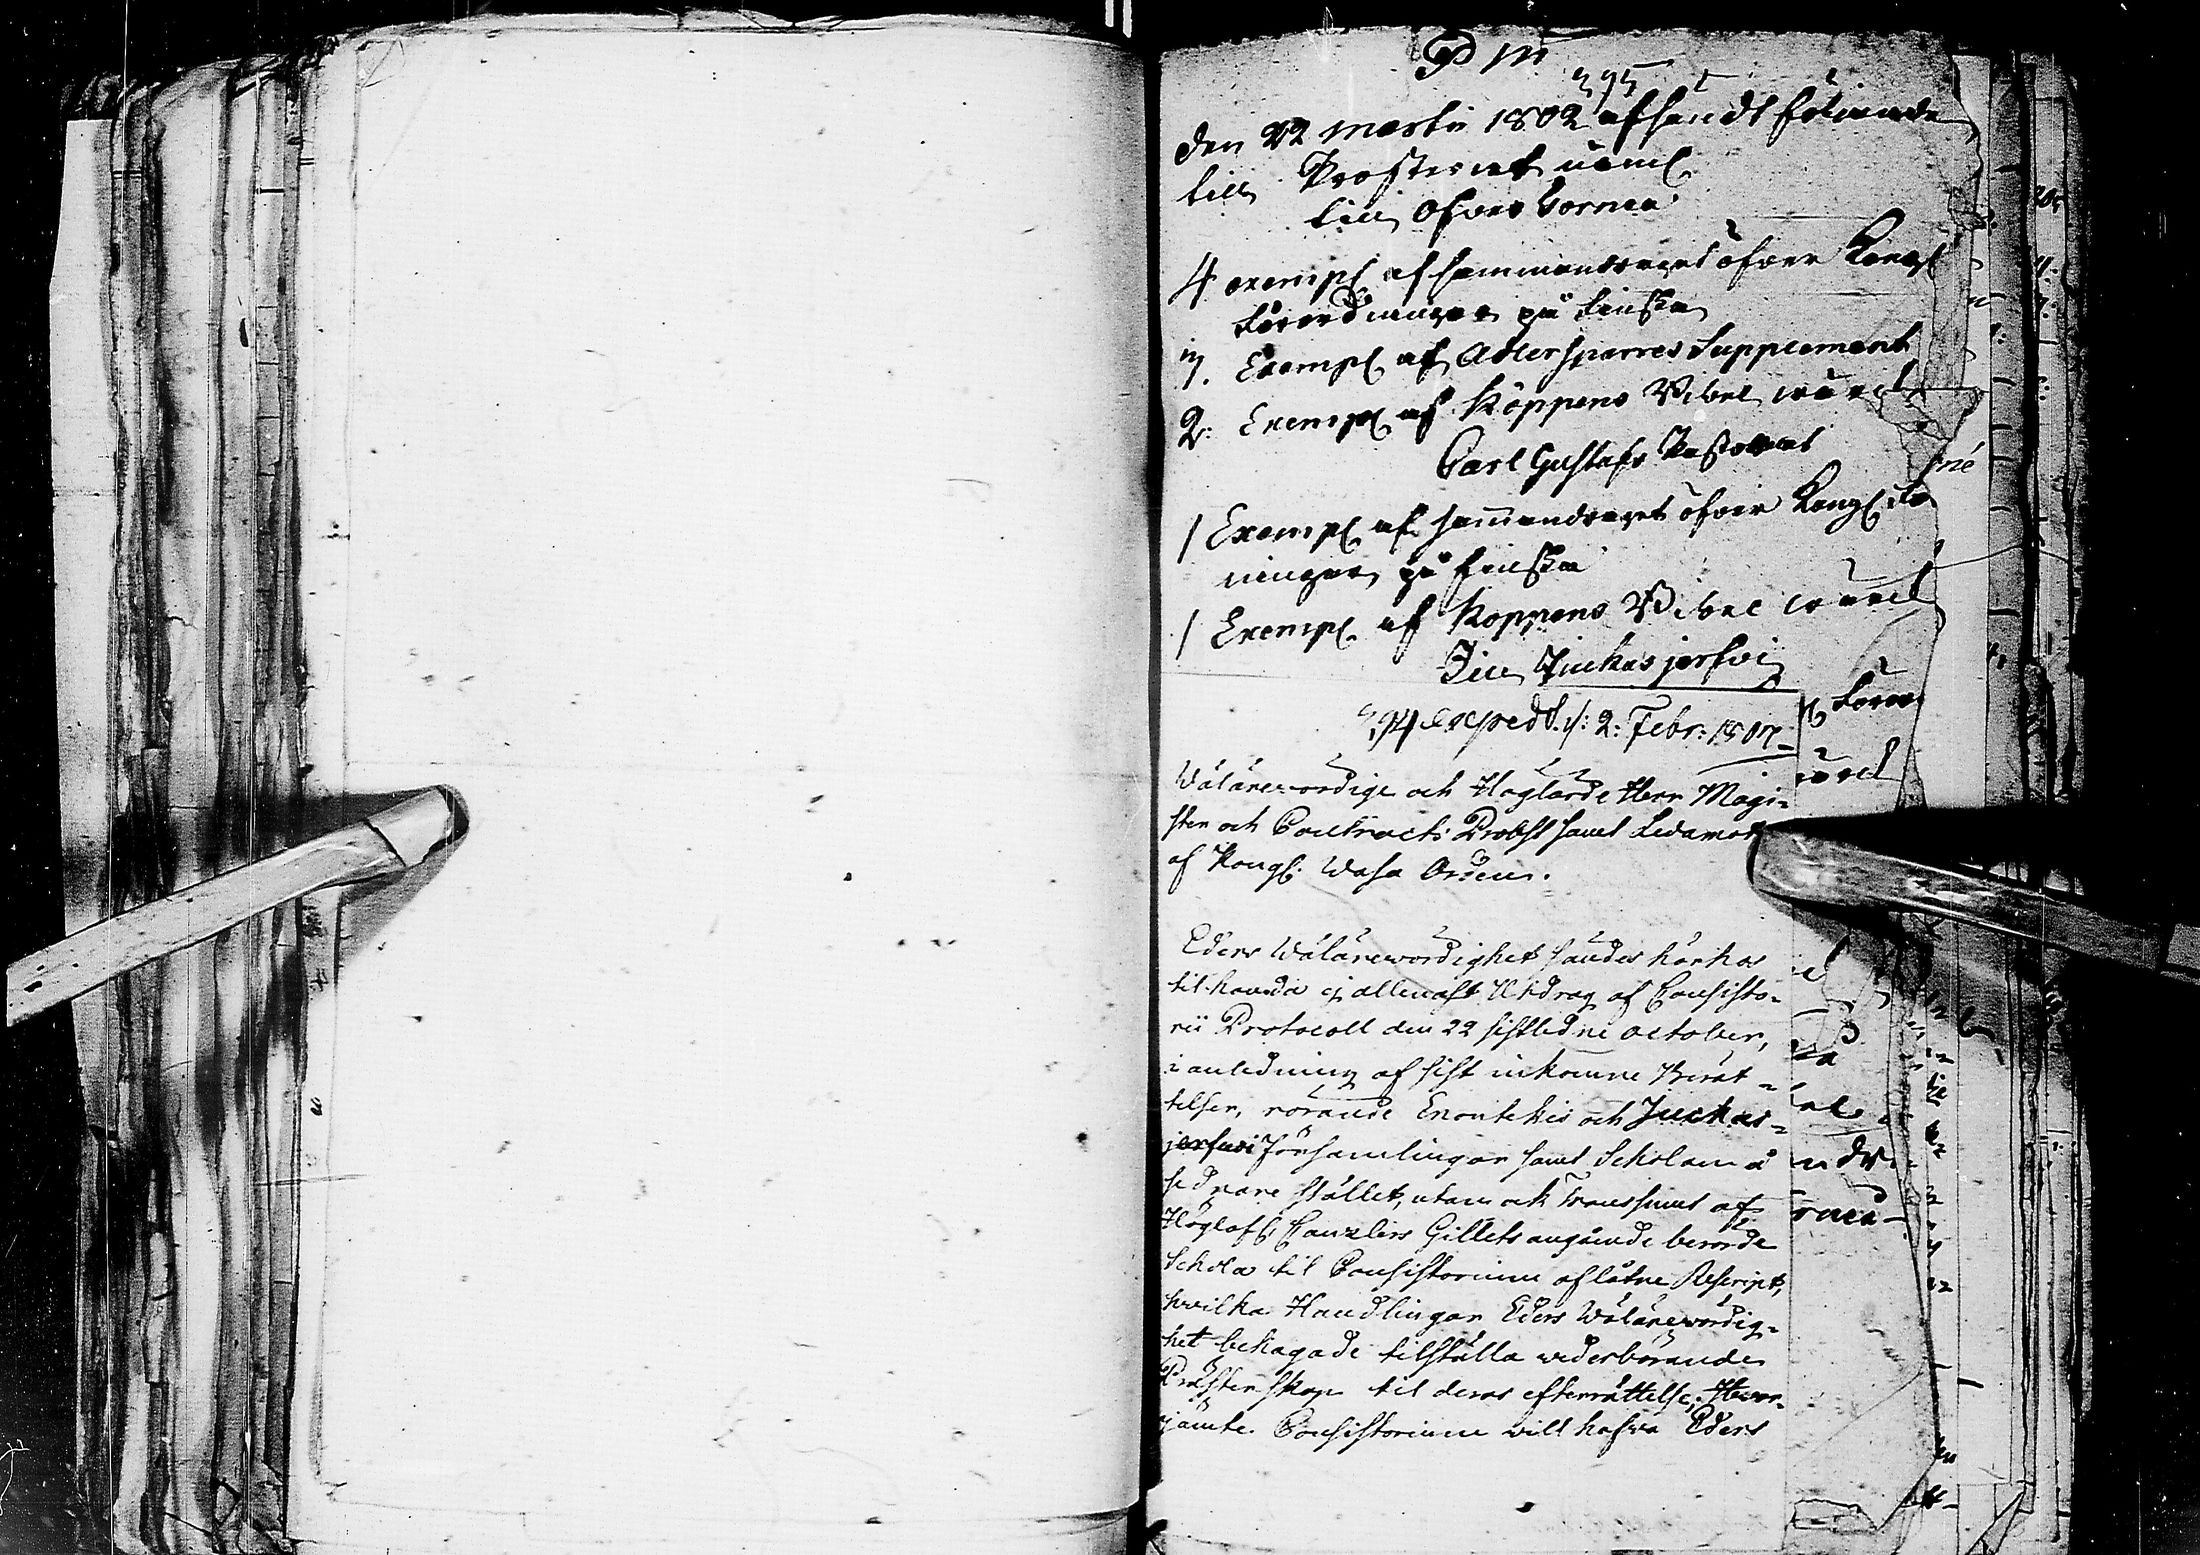 P M
395
den 22 Martii 1802 afsändt följande
till Prosteriet näml.
till Öfver Tornea
4 exempl af Sammandraget öfver Kongl
Förordningar på Finska
7. Exempl af Adlersparres Supplement
2. Exempl af Köppens Bibel wärd
Carl Gustafs Pastorat
1 Exempl af Sammandraget öfver Kongl. För
ningar på Finska
1 Exempl. af Köppens Bibel wärd
Till Juckasjerfvi
394 exped. d: 2: Febr: 1807
Wälärewördige och Höglärde Herr Magi-
ster och Contracts Probst samt Ledamot
af Kongl. Wasa Orden.
Eders Wälärewördighet sändes härhos
tilhanda ej allenast Utdrag af Consisto-
rii Protocoll den 22 sistledne October,
i anledning af sist inkomne Berät-
telser, rörande Enontekis och Juckas-
jerfwi Församlingar samt Scholan å
sednare stället, utan ock Transsumt af
Höglofl. Canzlers Gillets angående berörde
Schola til Consistorium aflåtne Rescript,
hwilka Handlingar Eders Wälärewördig-
het behagade tilställa wederbörande
Prästerskap til deras efterrättelse; Hwar-
jämte Consistorium will hafwa Eders